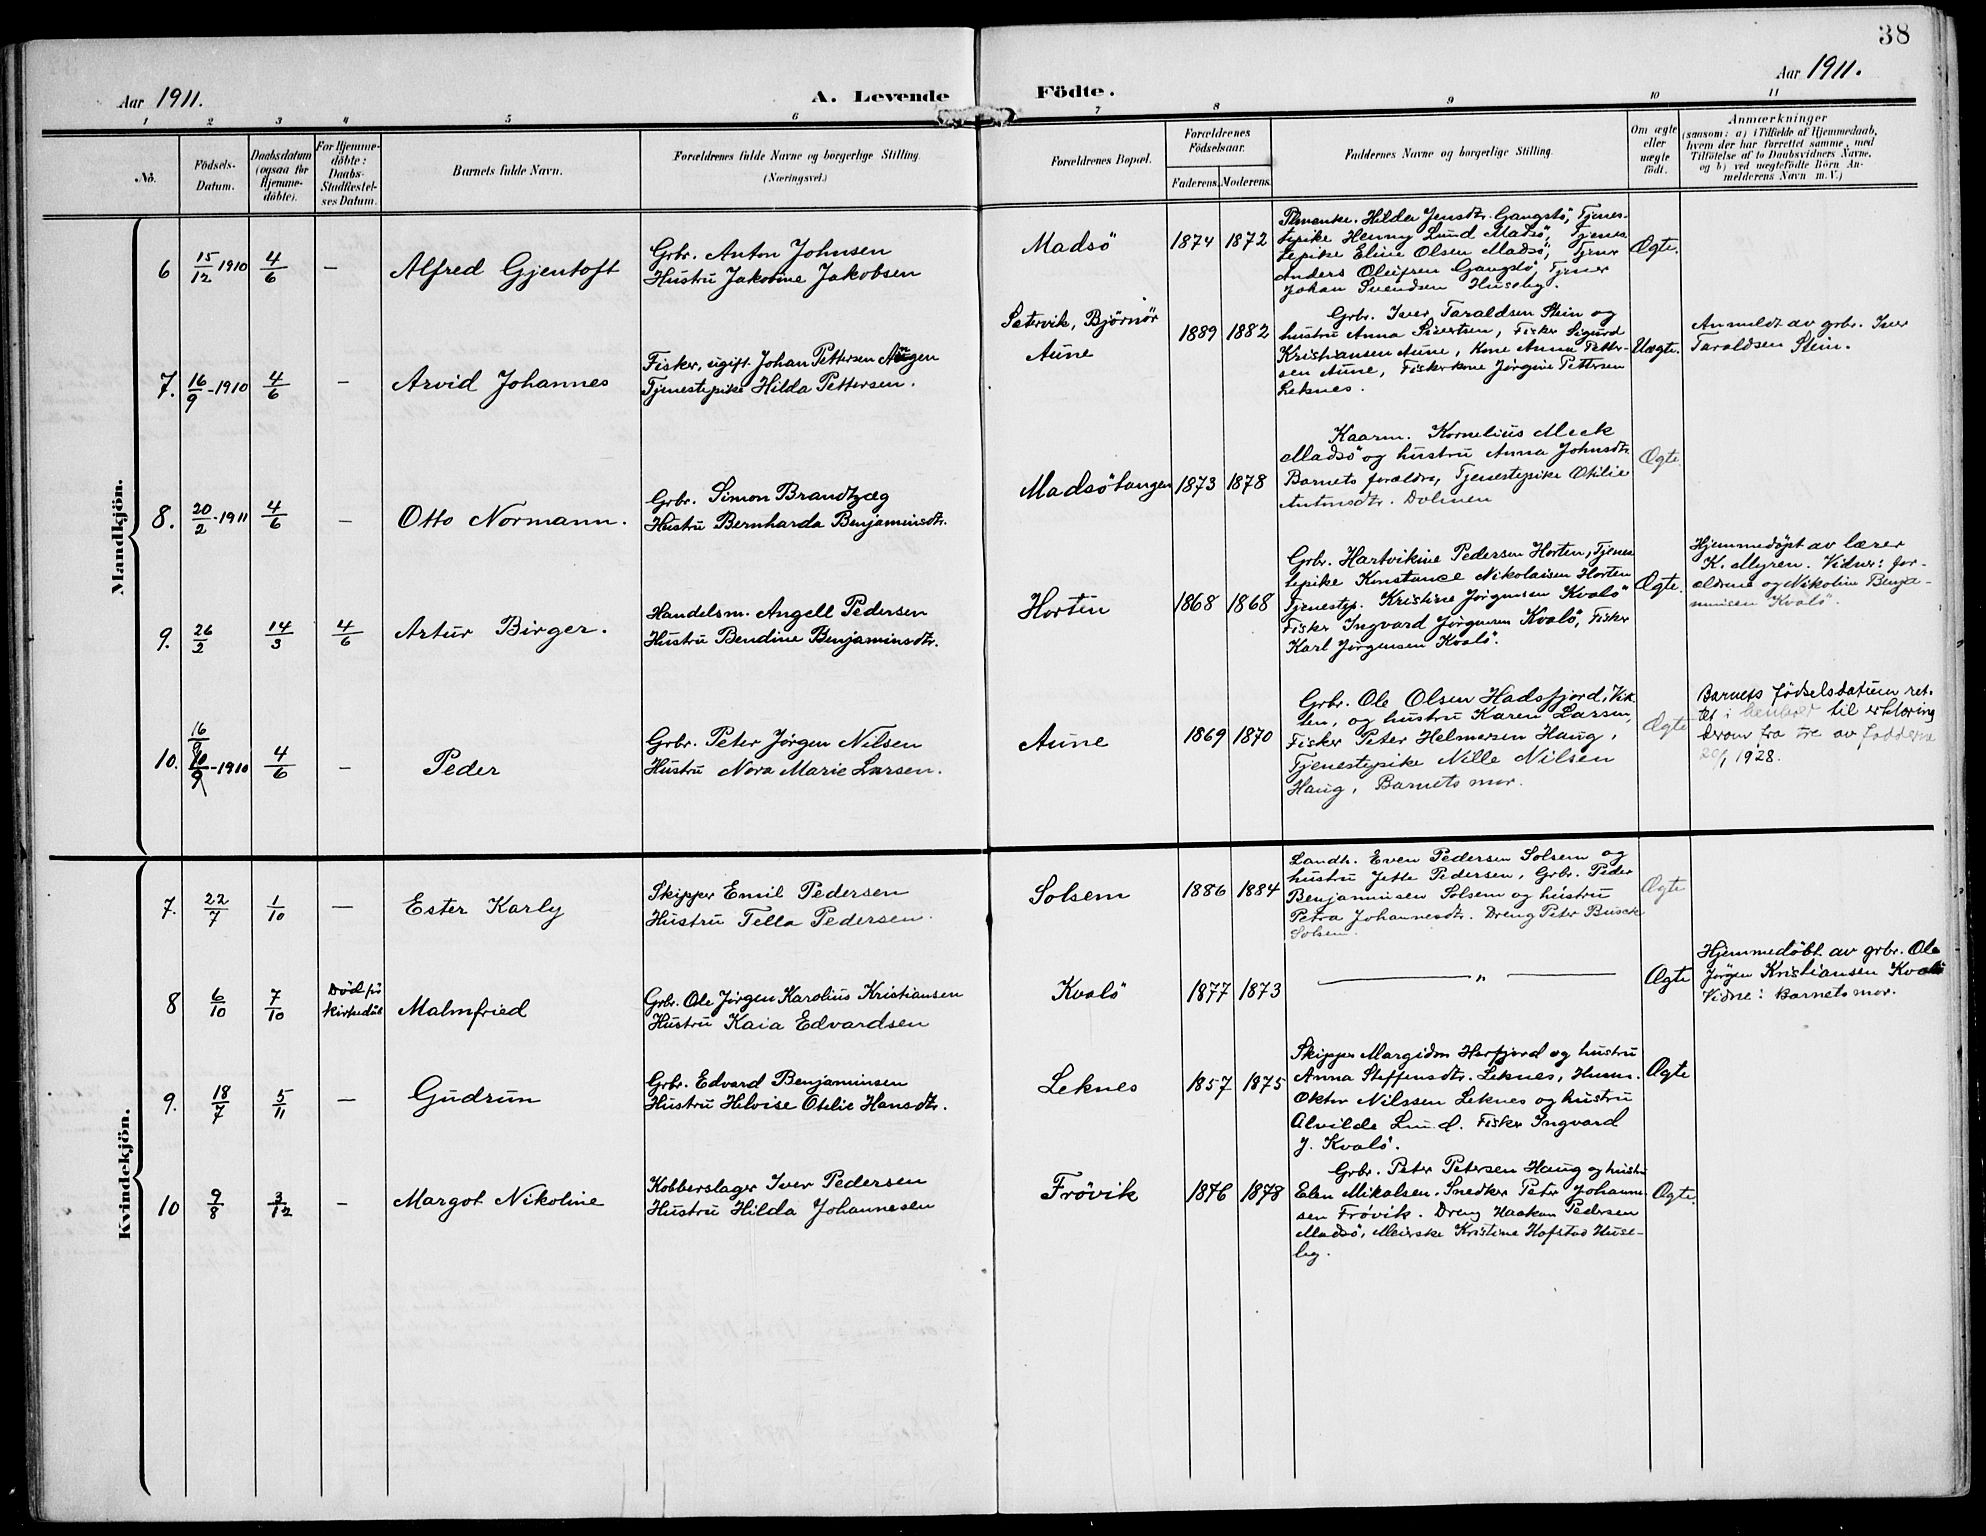 38
Aar 1911.
A. Levende
Födte.
Aar 1911.
1 2 3 4 5 6 7 8 9 10 11
No.
Födsels-
Datum.
Daabsdatum
(ogsaa for
Hjemme-
döbte).
For Hjemme-
döbte:
Daabs-
Stadfæstel-
ses Datum.
Barnets fulde Navn.
Forældrenes fulde Navne og borgerlige Stilling.
(Næringsvei.)
Forældrenes Bopæl.
Forældrenes
Födselsaar.
Faderens.
Moderens.
Faddernes Navne og borgerlige Stilling.
Om ægte
eller
uægte
födt.
Anmærkninger
(saasom: a) i Tilfælde af Hjemmedaab,
hvem der har forrettet samme, med
Tilföielse af to Daabsvidners Navne,
og b) ved uægtefödte Börn An-
melderens Navn m. V.)
Mandkjön.
6 15/12 1910 4/6 — Alfred Gjentoft
Grbr. Anton Johnsen
Hustru Jakobine Jakobsen
Madsö 1874 1872
Hilda Jensdtr. Gangstö, Tjenes-
tepike Henny Lund Madsö, Tjenes
tepike Eline Olsen Madsö, Tjener
Anders Gangstö, Tjener
Johan Svendsen Huseby.
Ægte.
7. 16/9-1910 4/6 — Arvid Johannes
Fisker, ugift Johan Pettersen
Tjenestepike Hilda Pettersen.
Sætervik, Björnör
Aune
1889 1882
Grbr. Iver Taraldsen Stein og
hustru Anna Sivertsen, Fisker Sigurd
Kristiansen Aune, Kone Anna Petter-
sen Aune, Fiskerkone Jørgine Pettersen
Leknes.
Uægte.
Anmeldt av grbr. Iver
Taraldsen Stein.
8. 20/2-1911 4/6 — Otto Normann.
Grbr. Simon Brandtzæg
Hustru Bernharda Benjaminsdtr.
Madsötangen 1873 1878
Kaarm. Kornelius Meek
Madsö og hustru Anna Johnsdtr.
Barnets forældre, Tjenestepike Otilie
Antonsdtr. Dolmen
Ægte
9. 26/2 14/3 4/6 Artur Birger.
Handelsm. Angell Pedersen
Hustru Bendine Benjaminsdtr.
Horten 1868 1868
Grbr. Hartvikine Pedersen Horten, Tjenes
tepike Konstance Nikolaisen Horten
Tjenestep. Kristine Jørgensen Kvalö
Fisker Ingvard Jørgensen Kvalö, Fisker
Karl Jørgensen Kvalö.
Ægte.
Hjemmedøpt av lærer
K. Myren. Vidner: for-
ældrene og Nikoline Benja-
minsen Kvalö.
10. 16/9 10/9-1910 4/6 — Peder
Grbr. Peter Jørgen Nilsen
Hustru Nora Marie Larsen.
Aune 1869 1870
Grbr. Ole Olsen Hadsfjord, Vik-
ten, og hustru Karen Larsen,
Fisker Peter Helmersen Haug,
Tjenestepike Nille Nilsen
Haug, Barnets mor.
Ægte
Barnets fødselsdatum ret-
tet i henhold til erklæring
herom fra tre av fadderne
20/1 1928.
Kvindekjön.
7. 22/7 1/10 — Ester Karly
Skipper Emil Pedersen
Hustru Tella Pedersen.
Solsem 1886 1884
Landh. Even Pedersen Solsem og
hustru Jette Pedersen, Grbr. Peder
Benjaminsen Solsem og hustru
Petra Johannesdtr. Dreng Peter Busch
Solsem.
Ægte
8 6/10 7/10 Död før
kirkedåb
Malmfried
Grbr. Ole Jørgen Karolius Kristiansen
Hustru Kaia Edvardsen
Kvalö 1877 1873
— „ —
Ægte
Hjemmedöbt av grbr. Ole
Jörgen Kristiansen Kvalö
Vidne: Barnets mor.
9. 18/7 5/11 — Gudrun
Grbr. Edvard Benjaminsen
Hustru Helvise Otelie Hansdtr.
Leknes 1857 1875
Skipper Margidon Herfjord og hustru
Anna Steffensdtr. Leknes, Husm.
Oktav Nilssen Leknes og hustru
Alvilde Lund. Fisker Ingvard
J. Kvalö.
Ægte
10 9/8 3/12 — Margot Nikoline
Kobberslager Iver Pedersen
Hustru Hilda Johannesen
Frövik 1876 1878
Grbr. Peter Petersen Haug og hustru
Elen Mikalsen. Snedker Peter Johanne-
sen Frövik. Dreng Haakon Pedersen
Madsö, Meierske Kristine Hofstad Huse-
by.
Ægte.